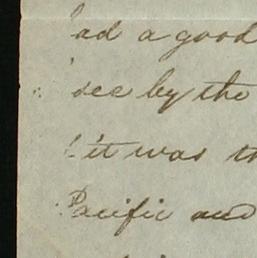 ad a good
see by the
it was th
Pacific and